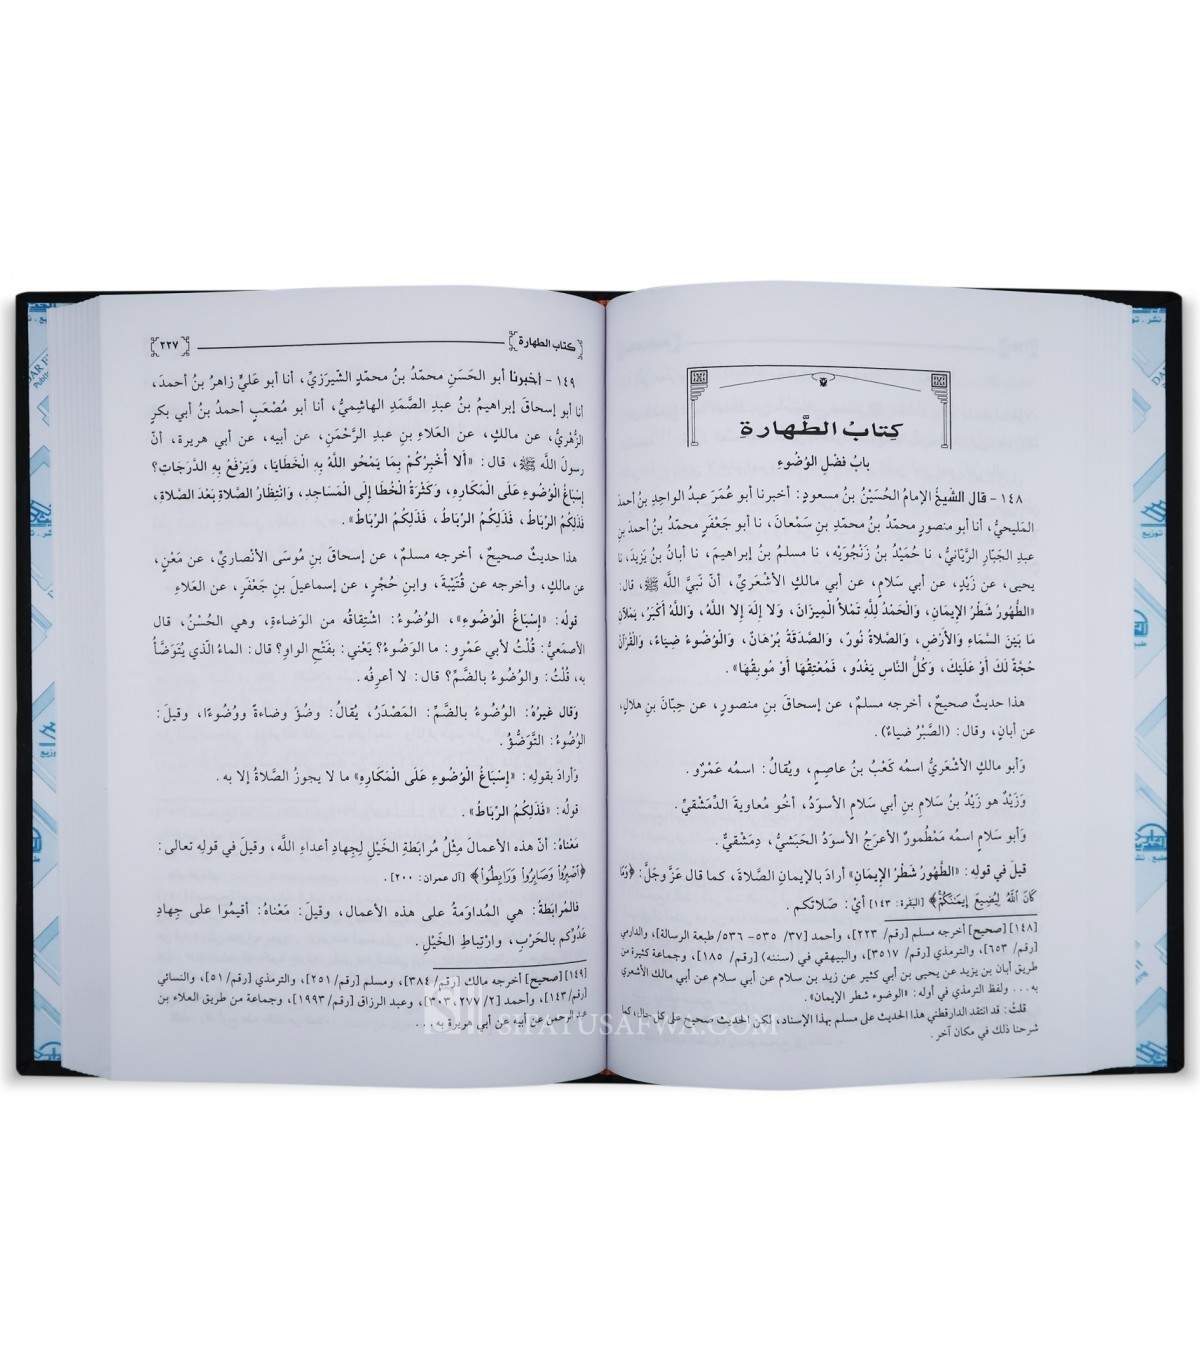 كِتابُ الطَّهارةِ
بابُ فضْلِ الوُضُوءِ
١٤٨ - قال الشَّيخُ الإمامُ الحُسَيْنُ بنُ مسعودٍ: أخبرنا أبو عُمَرَ عبدُ الواحِدِ بنُ أحمدَ
المَليحيُّ، أنا أبو منصورٍ محمّدُ بنُ محمّدِ بنِ سَمْعانَ، نا أبو جَعْفَرٍ محمّدُ بنُ أحمدَ بنِ
عبدِ الجَبّارِ الرَّيّانيُّ، نا حُمَيْدُ بنُ زَنْجُوَيْه، نا مسلمُ بنُ إبراهيمَ، نا أبانُ بنُ يَزيدَ، نا
يحيى، عن زَيْدٍ، عن أبي سَلامٍ، عن أبي مالكٍ الأشْعَريِّ، أنّ نَبيَّ اللَّه ﷺ، قال:
«الطُّهُورُ شَطْرُ الإيمَانِ، وَالْحَمْدُ لِلَّهِ تَمْلأُ الْمِيزَانَ، وَلا إلَهَ إلا اللَّهُ، وَاللَّهُ أكْبَرُ، يَمْلآنِ
مَا بَيْنَ السَّمَاءِ وَالأرْضِ، وَالصَّلاةُ نُورٌ، وَالصَّدَقَةُ بُرْهَانٌ، وَالْوُضُوءُ ضِيَاءٌ، وَالْقُرْآنُ
حُجَّةٌ لَكَ أوْ عَلَيْكَ، وَكُلُّ النَّاسِ يَغْدُو، فَمُعْتِقُهَا أوْ مُوبِقُهَا».
هذا حديثٌ صحيحٌ، أخرجه مسلمٌ، عن إسحاقَ بنِ منصورٍ، عن حِبّانَ بنِ هلالٍ،
عن أبانٍ، وقال: (الصَّبْرُ ضياءٌ).
وَأبو مالكٍ الأشْعَريُّ اسمُه كَعْبُ بنُ عاصِمٍ، ويُقالُ: اسمُه عَمْرٌو.
وَزَيْدٌ هو زَيْدُ بنُ سَلامِ بنِ أبي سَلامٍ الأسوَدُ، أخُو مُعاويةَ الدِّمَشْقيِّ.
وَأبو سَلامٍ اسمُه مَمْطُورٌ الأعرَجُ الأسوَدُ الحَبَشيُّ، دِمَشْقيٌّ.
قيلَ في قولِه: «الطُّهُورُ شَطْرُ الإيمَانِ» أرادَ بالإيمانِ الصَّلاةَ، كما قال عَزَّ وجَلَّ: ﴿وَمَا
كَانَ ٱللَّهُ لِيُضِيعَ إِيمَٰنَكُمْ﴾ [البقرة: ١٤٣] أيْ: صَلاتَكم.
[١٤٨] [صحيح] أخرجه مسلم [رقم/ ٢٢٣]، وأحمد [٣٧/ ٥٣٥- ٥٣٦/ طبعة الرسالة]، والدارمي
[رقم/ ٦٥٣]، والترمذي [رقم/ ٣٥١٧]، والبيهقي في (سننه) [رقم/ ١٨٥]، وجماعة كثيرة من
طريق أبان بن يزيد عن يحيى بن أبي كثير عن زيد بن سلام عن أبي سلام عن أبي مالك الأشعري
به... ولفظ الترمذي في أوله: «الوضوء شطر الإيمان».
قلتُ: قد انتقد الدارقطني هذا الحديث على مسلم بهذا الإسناد، لكن الحديث صحيح على كل حال، كما
شرحنا ذلك في مكان آخر.
كتاب الطهارة
٢٢٧
١٤٩ - أخبرنا أبو الحَسَنِ محمّدُ بنُ محمّدٍ الشِّيرَزيُّ، أنا أبو عَليٍّ زاهرُ بنُ أحمدَ،
أنا أبو إسحاقَ إبراهيمُ بنُ عبدِ الصَّمَدِ الهاشِميُّ، أنا أبو مُصْعَبٍ أحمدُ بنُ أبي بكرٍ
الزُّهْريُّ، عن مالكٍ، عن العَلاءِ بنِ عبدِ الرَّحْمَنِ، عن أبيه، عن أبي هريرة، أنّ
رسولَ اللَّه ﷺ، قال: «ألا أُخْبِرُكُمْ بِمَا يَمْحُو اللَّهُ بِهِ الْخَطَايَا، وَيَرْفَعُ بِهِ الدَّرَجَاتِ؟
إسْبَاغُ الْوُضُوءِ عَلَى الْمَكَارِهِ، وَكَثْرَةُ الْخُطَا إلَى الْمَسَاجِدِ، وَانْتِظَارُ الصَّلاةِ بَعْدَ الصَّلاةِ،
فَذَلِكُمُ الرِّبَاطُ، فَذَلِكُمُ الرِّبَاطُ، فَذَلِكُمُ الرِّبَاطُ».
هذا حديثٌ صحيحٌ، أخرجه مسلمٌ، عن إسحاقَ بنِ مُوسَى الأنْصاريِّ، عن مَعْنٍ،
عن مالكٍ، وأخرجه عن قُتَيْبَةَ، وابنِ حُجْرٍ، عن إسماعيلَ بنِ جَعْفَرٍ، عن العَلاءِ
قولُه: «إسْبَاغُ الْوُضُوءِ»، الوُضُوءُ: اشتِقاقُه من الوَضاءَةِ، وهي الحُسْنُ، قال
الأصمَعيُّ: قُلْتُ لأبي عَمْرٍو: ما الوَضُوءُ؟ يَعْني: بفَتْحِ الواوِ؟ قال: الماءُ الّذي يُتَوَضَّأُ
به، قُلْتُ: والوُضُوءُ بالضَّمِّ؟ قال: لا أعرِفُه.
وَقال غيرُهُ: الوُضُوءُ بالضَّمِّ: المَصْدَرُ، يُقالُ: وضُؤَ وضاءةً ووُضُوءًا، وقيلَ:
الوُضُوءُ: التَّوَضُّؤُ.
وَأرادَ بقولِه: «إسْبَاغُ الْوُضُوءِ عَلَى الْمَكَارِهِ» ما لا يجوزُ الصَّلاةُ إلا به.
قولُه: «فَذَلِكُمُ الرِّبَاطُ».
مَعْناهُ: أنّ هذه الأعمالَ مِثْلُ مُرابَطةِ الخَيْلِ لِجِهادِ أعداءِ اللَّه، وقيلَ في قولِه تعالى:
﴿ٱصْبِرُوا۟ وَصَابِرُوا۟ وَرَابِطُوا۟﴾ [آل عمران: ٢٠٠].
فالمُرابَطةُ: هي المُداوَمةُ على هذه الأعمالِ، وقيلَ: مَعْناهُ: أقيمُوا على جِهادِ
عَدُوِّكم بالحَرْبِ، وارْتِباطِ الخَيْلِ.
[١٤٩] [صحيح] أخرجه مالك [رقم/ ٣٨٤]، ومسلم [رقم/ ٢٥١]، والترمذي [رقم/ ٥١]، والنسائي
[رقم/ ١٤٣]، وأحمد [٢/ ٢٧٧، ٣٠٣]، وعبد الرزاق [رقم/ ١٩٩٣]، وجماعة من طريق العلاء بن
عبد الرحمن عن أبيه عن أبي هريرة به...
SIFATUSAFWA.COM